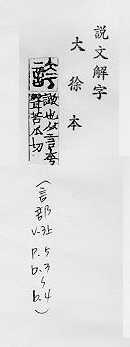 説文解字
大徐本
誇
譀也从言夸
聲苦瓜切
(言部
v.3上
p.5
b.3
~
b.4)